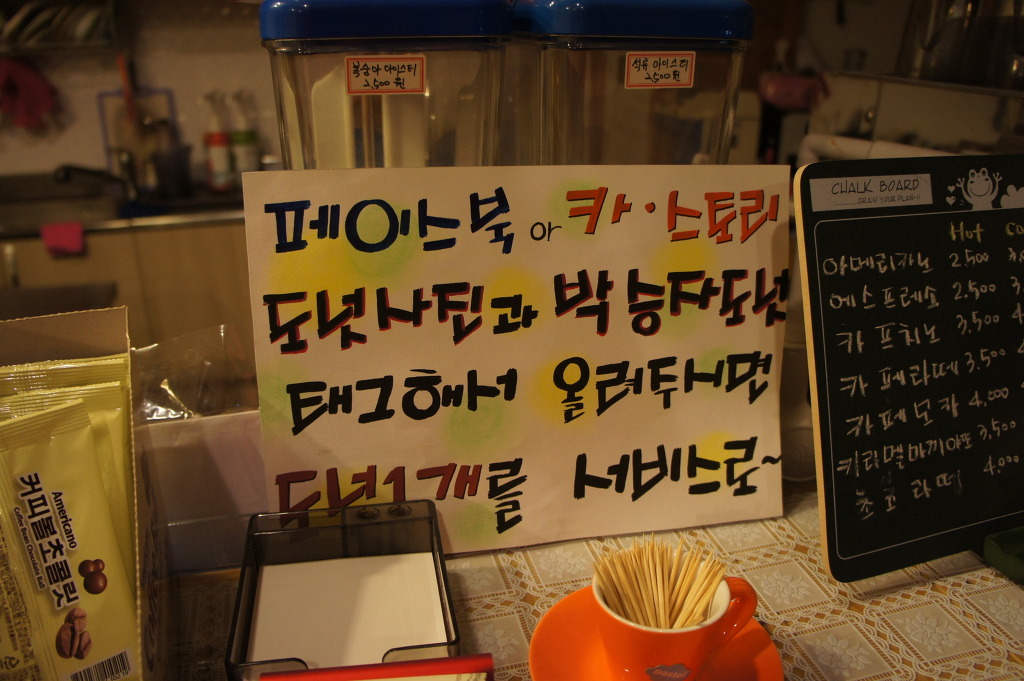 복숭아 아이스티
2,500원
석류 아이스티
2,500원
페이스북 or 카·스토리
도넛사진과 박승자도넛
태그해서 올려두시면
도넛1개를 서비스로~
CHALK BOARD
DRAW YOUR PLAN!!
Hot
아메리카노 2.500
에스프레소 2.500
카프치노 3,500
카페라떼 3,500
카페모카 4,000
카라멜마끼아또 3,500
초코라떼 4,000
Americano
커피볼초콜릿
Coffee Bean Chocolate Ball